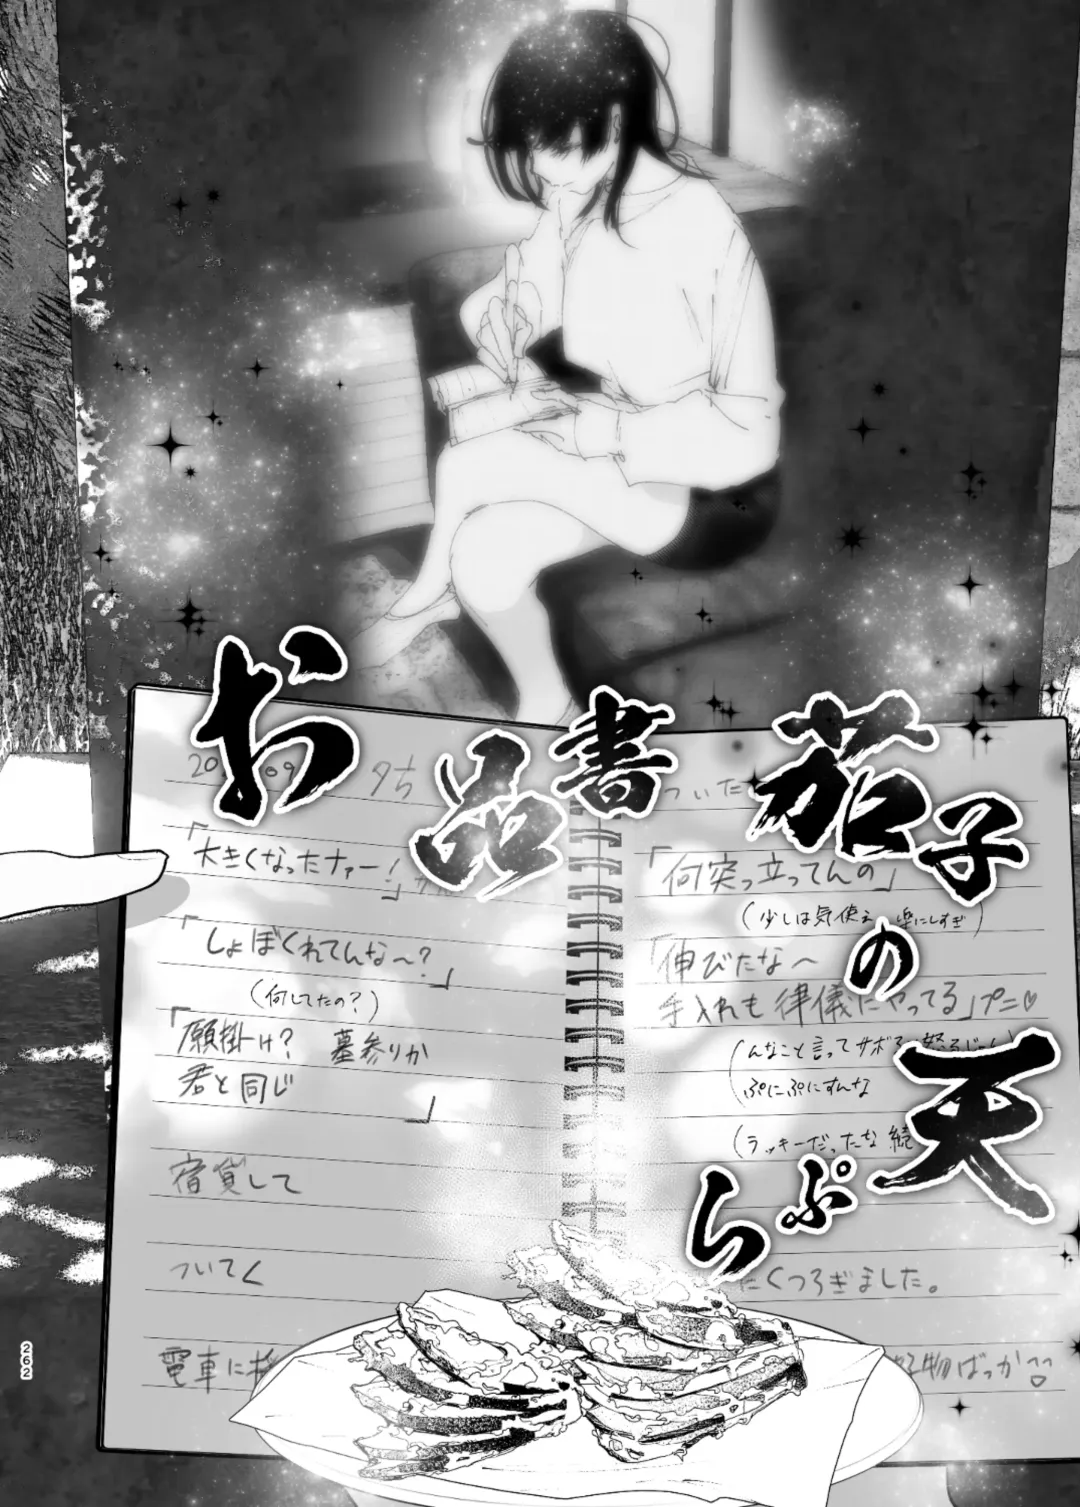 お品書
茄子の天ぷら
20 09 夕方
「大きくなったナァー！」
「しょぼくれてんな～？」
（何してたの？）
「願掛け？ 墓参りか
君と同じ」
宿貸して
ついてく
電車に
ついた
「何突っ立ってんの」
（少しは気使え 楽にしすぎ）
「伸びたな～
手入れも律儀にやってる」プニ♡
（んなこと言ってサボ
ぷにぷにすんな
（ラッキーだったな 続
くつろぎました。
物ばっか~~♡
262